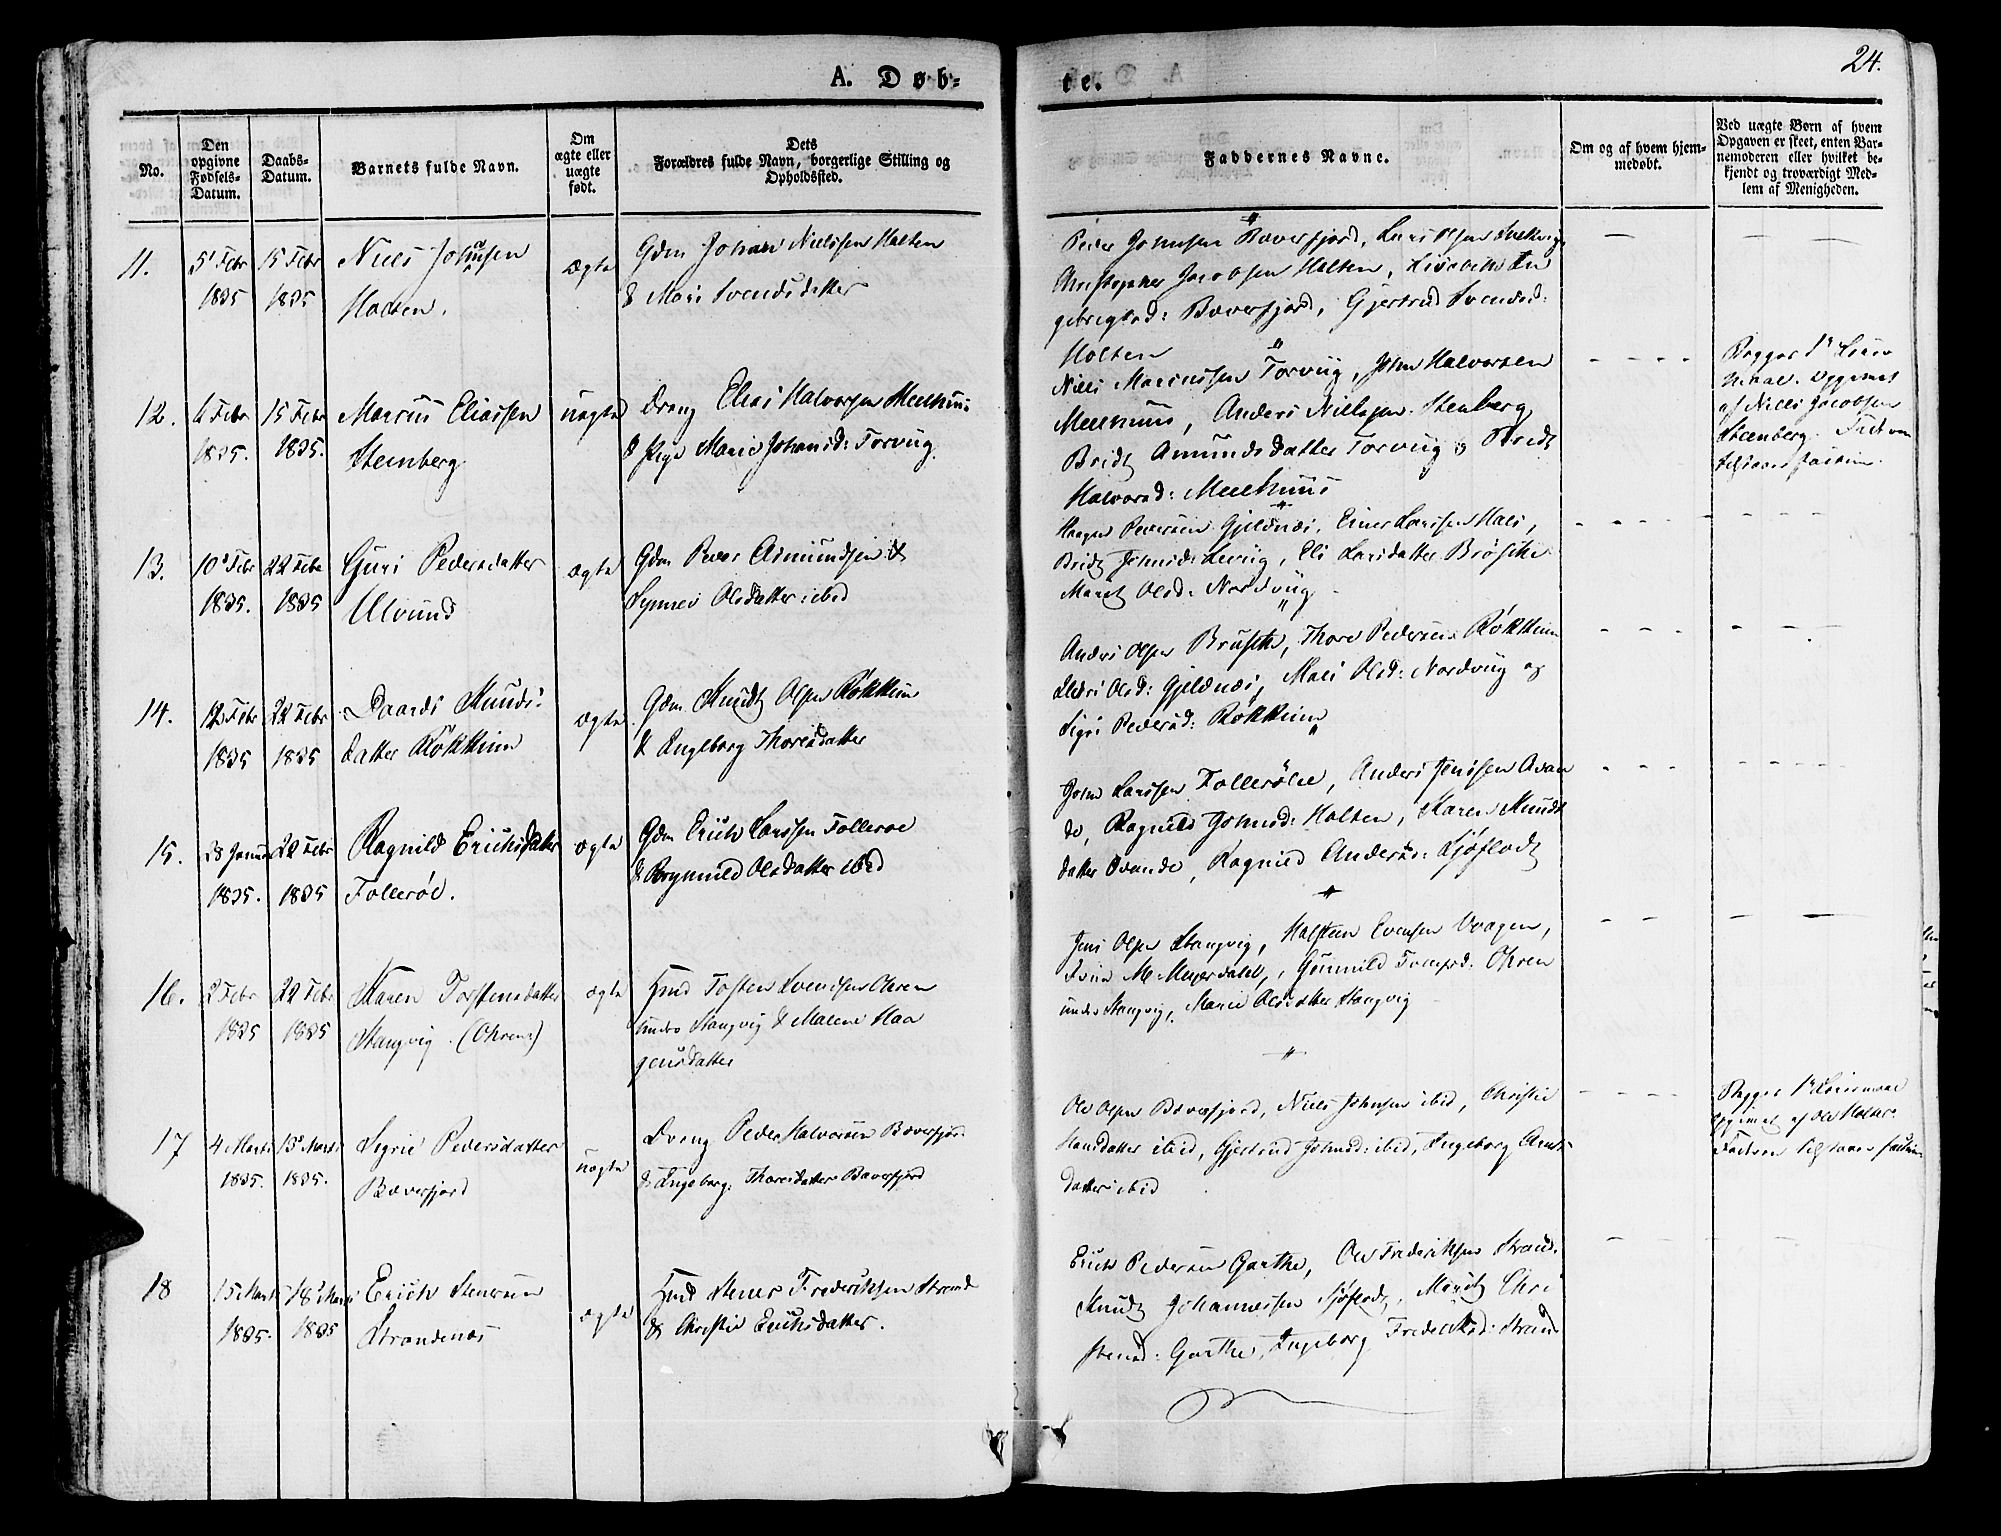 24.
A. Døb-
te.
No.
Den opgivne Fødsels-Datum.
Daabs-Datum.
Barnets fulde Navn.
Om ægte eller uægte født.
Dets Forældres fulde Navn, borgerlige Stilling og Opholdssted.
Faddernes Navne.
Om og af hvem hjemmedøbt.
Ved uægte Børn af hvem Opgaven er skeet, enten Barnemoderen eller hvilket bekjendt og troværdigt Medlem af Menigheden.
11.
5 Febr
1835
15 Febr
1835
Niels Johnsen
Holten.
ægte
Gdm Johan Nielssen Holten
& Mari Svendsdatter
Peder Johnsen Bæverfjord, Lars Olsen
Christopher Jacobsen Holten, Lisabeth In
gebrigtsd: Bæverfjord, Gjertrud Svendsd:
Holten
12.
6 Febr
1835.
15 Febr
1835.
Marcus Eliassen
Stenberg
uægte
Dreng Elias Halvorsen Meelhuus
& Pige Marie Johansd: Torvug
Niels Marcussen Torvug, John Halvorsen
Meelhuus, Anders Nielssen Stenberg
Bridt Amundsdatter Torvug & Bridt
Halvorsd: Meelhuus
Begges 1e Leier
maal. Opgivet
af Niels Jacobsen
Steenberg.
13.
10 Febr
1835.
22 Febr
1835
Guri Pedersdatter
Ulvund
ægte
Gdm Peder Asmundsen &
Synnev Olsdatter ibid
Haagen Pedersen Gjeldnæs, Einer Larssen Hals,
Bridt Johnsd: , Eli Larsdatter Brøske
Marit Olsd: Nordvug
14.
12 Febr
1835
22 Febr
1835
Daardi Knuds
datter Røkkum
ægte
Gdm Knudt Olsen Røkkum
& Ingeborg Thoresdatter
Anders Olsen Bruske, Thore Pedersen Røkkum
Olsd: Gjeldnæs, Mali Olsd: Nordvug og
Sigri Pedersd: Røkkum
15.
28 Januar
1835.
22 Febr
1835
Ragnild Erichsdatter
Follerøe.
ægte
Gdm Erich Larssen Follerøe
& Brynnild Olsdatter ibid
John Larssen Follerøe, Anders Jenssen Avan
de, Ragnild Johnsd: Holten, Karen Knudt
datter Avande, Ragnild Andersd: Sjøflodt
16.
2 Febr
1835
22 Febr
1835
Karen Torstensdatter
Stangvig (Øhren)
ægte
Hmd Tosten Svendsen Øhren
under Stangvig & Malene Haa
gensdatter
Jens Olsen Stangvig, Halsten Evensen Vaagen,
M. , Gunnild Svendsd: Øhren
under Stangvig, Marie Olsdatter Stangvig
17
4 Marts
1835.
15 Marts
1835.
Sigrie Pedersdatter
Bæverfjord
uægte
Dreng Peder Halvorsen Bæverfjor:
& Ingeborg Thoresdatter Bæverfjord
Ole Olsen Bæverfjord, Niels Johnsen ibid, Christi
Hansdatter ibid, Gjertrud Johnsd: ibid, Ingeborg Arnts
datter ibid
Begges 1e Leiermaal
Opgivet af
18
15 Marts
1835.
18 Marts
1835
Erich Stenersen
Strandenæs
ægte
Hmd Stener Frederiksen Strand
& Christi Erichsdatter.
Erich Pedersen Garthe, Ole Frederiksen Strand.
Knudt Johannessen Sjøflodt, Maridt Chri
stensd: Garthe, Ingeborg Frederiksd: Strand